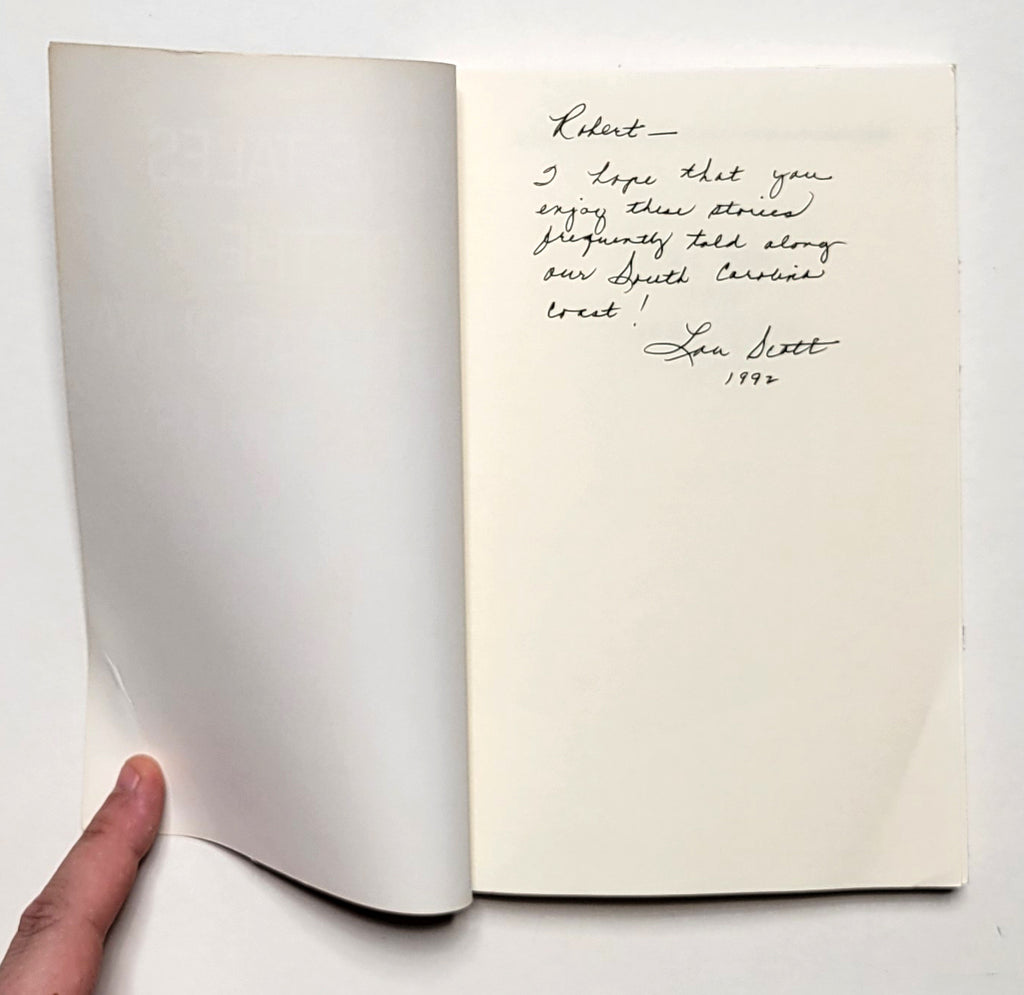 Robert —
I hope that you
enjoy these stories
frequently told along
our South Carolina
coast!
Lou Scott
1992